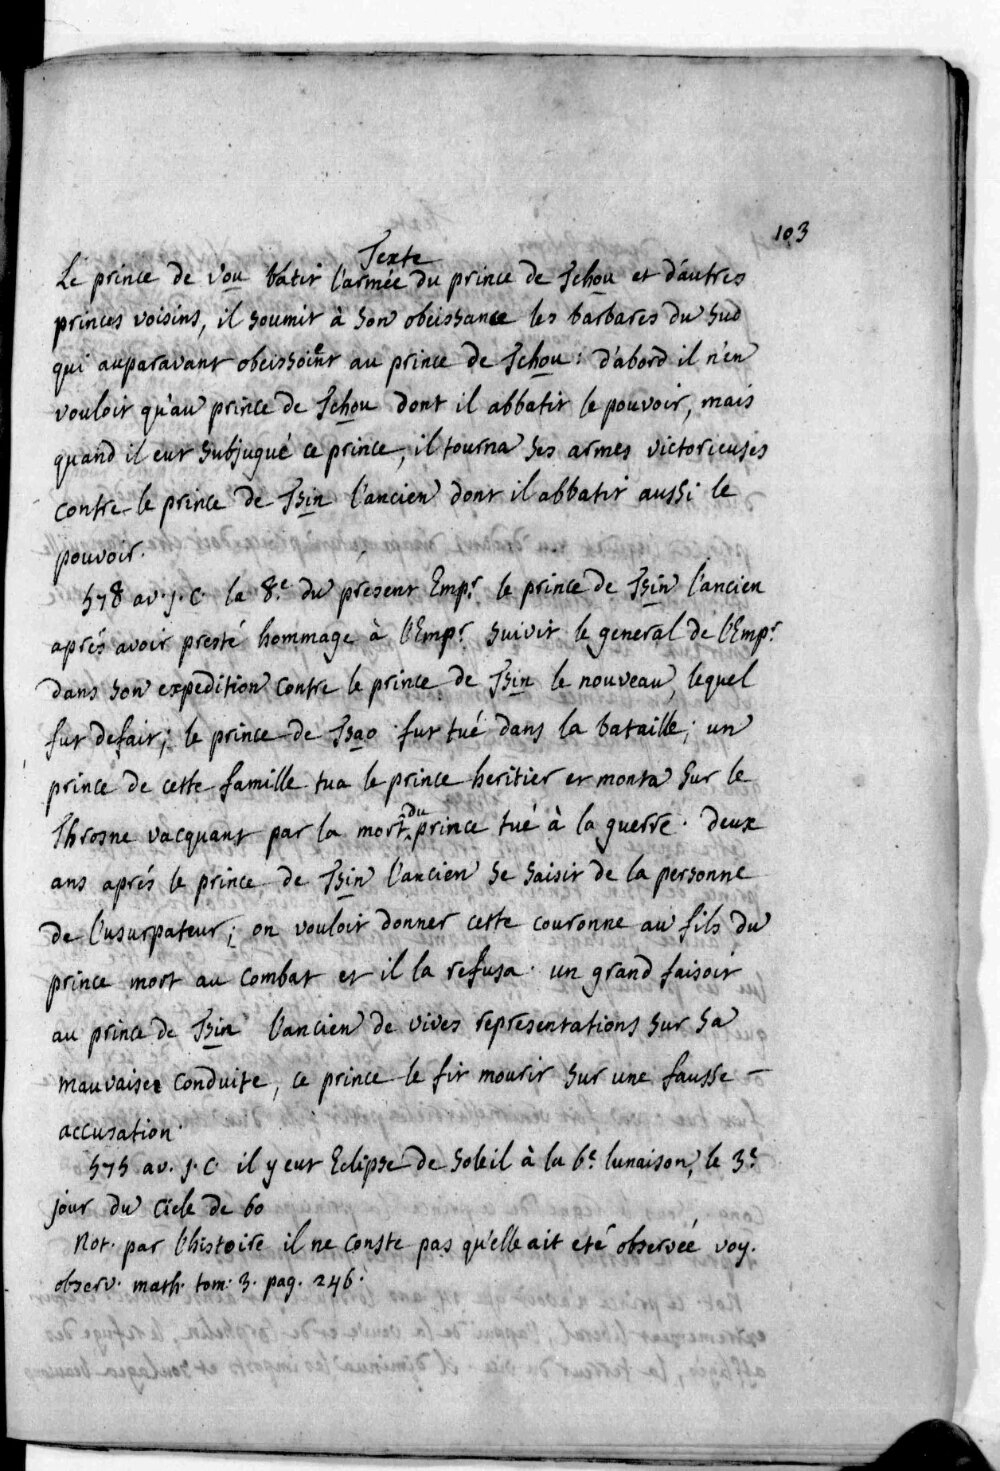 103
Texte
Le prince de v'ou batit l'armée du prince de Tchou et d'autres
princes voisins, il soumit à son obeissance les barbares du sud
qui auparavant obeissoient au prince de Tchou: d'abord il n'en
vouloit qu'au prince de Tchou dont il abbatit le pouvoir, mais
quand il eut subjugué ce prince, il tourna ses armes victorieuses
contre le prince de Tsin l'ancien dont il abbatit aussi le
pouvoir.
578 av. j. C. la 8.e du present Emp.r le prince de Tsin l'ancien
aprés avoir presté hommage à l'Emp.r suivit le general de l'Emp.r
dans son expedition contre le prince de Tsin le nouveau, lequel
fut defait; le prince de Tsao fut tué dans la bataille; un
prince de cette famille tua le prince heritier et monta sur le
Throsne vacquant par la mort du prince tué à la guerre. deux
ans aprés le prince de Tsin l'ancien se saisit de la personne
de l'usurpateur; on vouloit donner cette couronne au fils du
prince mort au combat et il la refusa. un grand faisoit
au prince de Tsin l'ancien de vives representations sur sa
mauvaise conduite, ce prince le fit mourir sur une fausse
accusation.
575 av. j. C. il y eut Eclipse de soleil à la 6.e lunaison, le 3.e
jour du cicle de 60
Not. par l'histoire il ne conste pas qu'elle ait eté observeé voy.
observ. math. tom. 3. pag. 246.